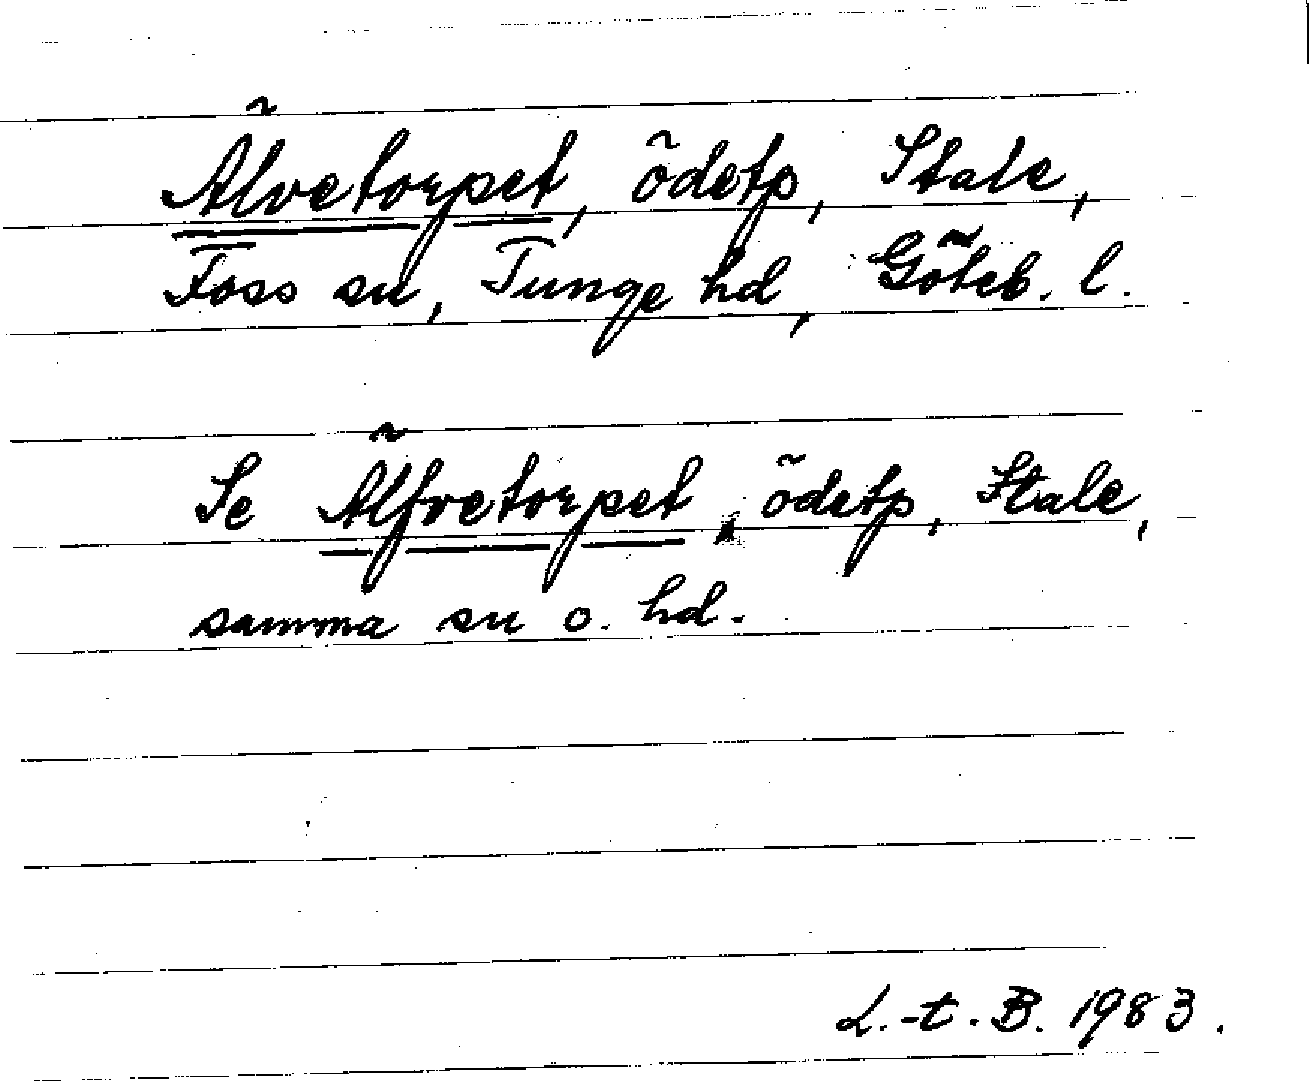 Älvetorpet, ödetp, Stale,
Foss sn, Tunge hd, Göteb. l.
Se Älfvetorpet, ödetp, Stale,
samma sn o. hd.
L.-t. B. 1983.